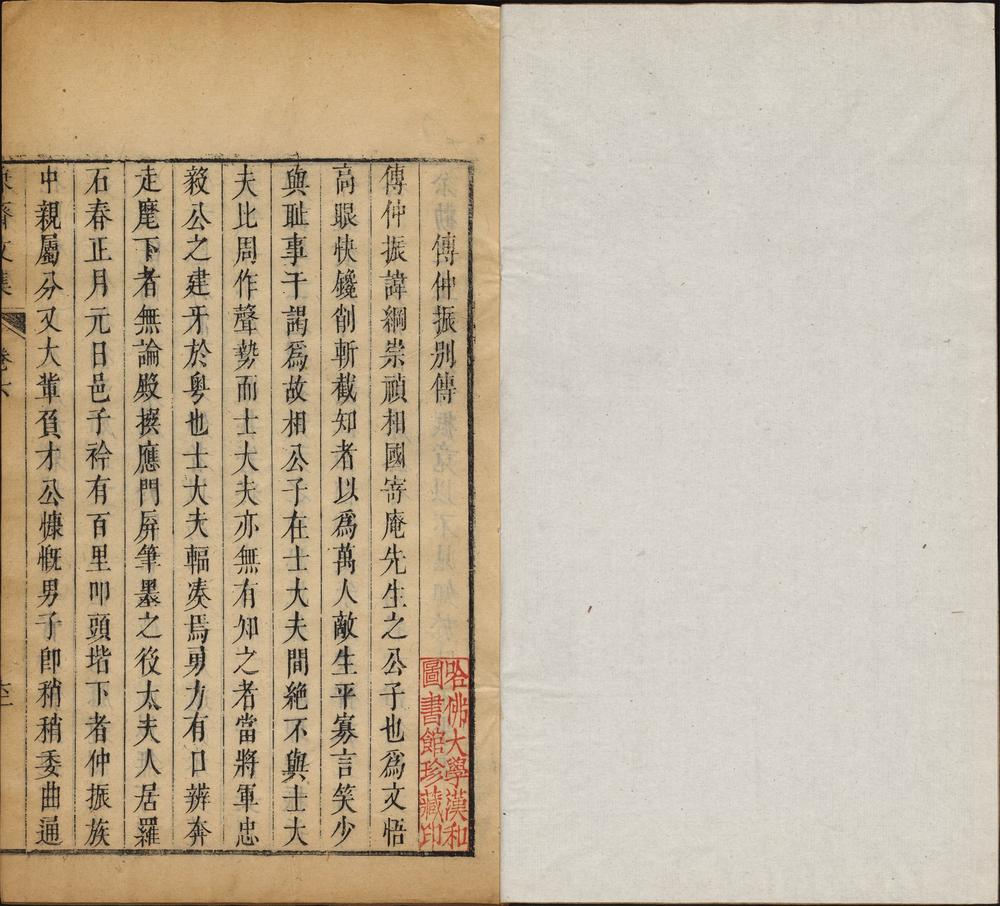 傅仲振別傳
傅仲振諱綱崇禎相國寄庵先生之公子也爲文悟
高眼快鑱削斬截知者以爲萬人敵生平寡言笑少
與耻事干謁爲故相公子在士大夫間絕不與士大
夫比周作聲勢而士大夫亦無有知之者當將軍忠
毅公之建牙於粤也士大夫輻凑焉勇力有口辨奔
走麾下者無論殿撰應門屏筆墨之役太夫人居羅
石春正月元日邑子衿有百里叩頭堦下者仲振族
中親屬分又大軰負才公慷慨男子卽稍稍委曲通
齊文集
卷六
哈佛大學漢和
圖書館珍藏印